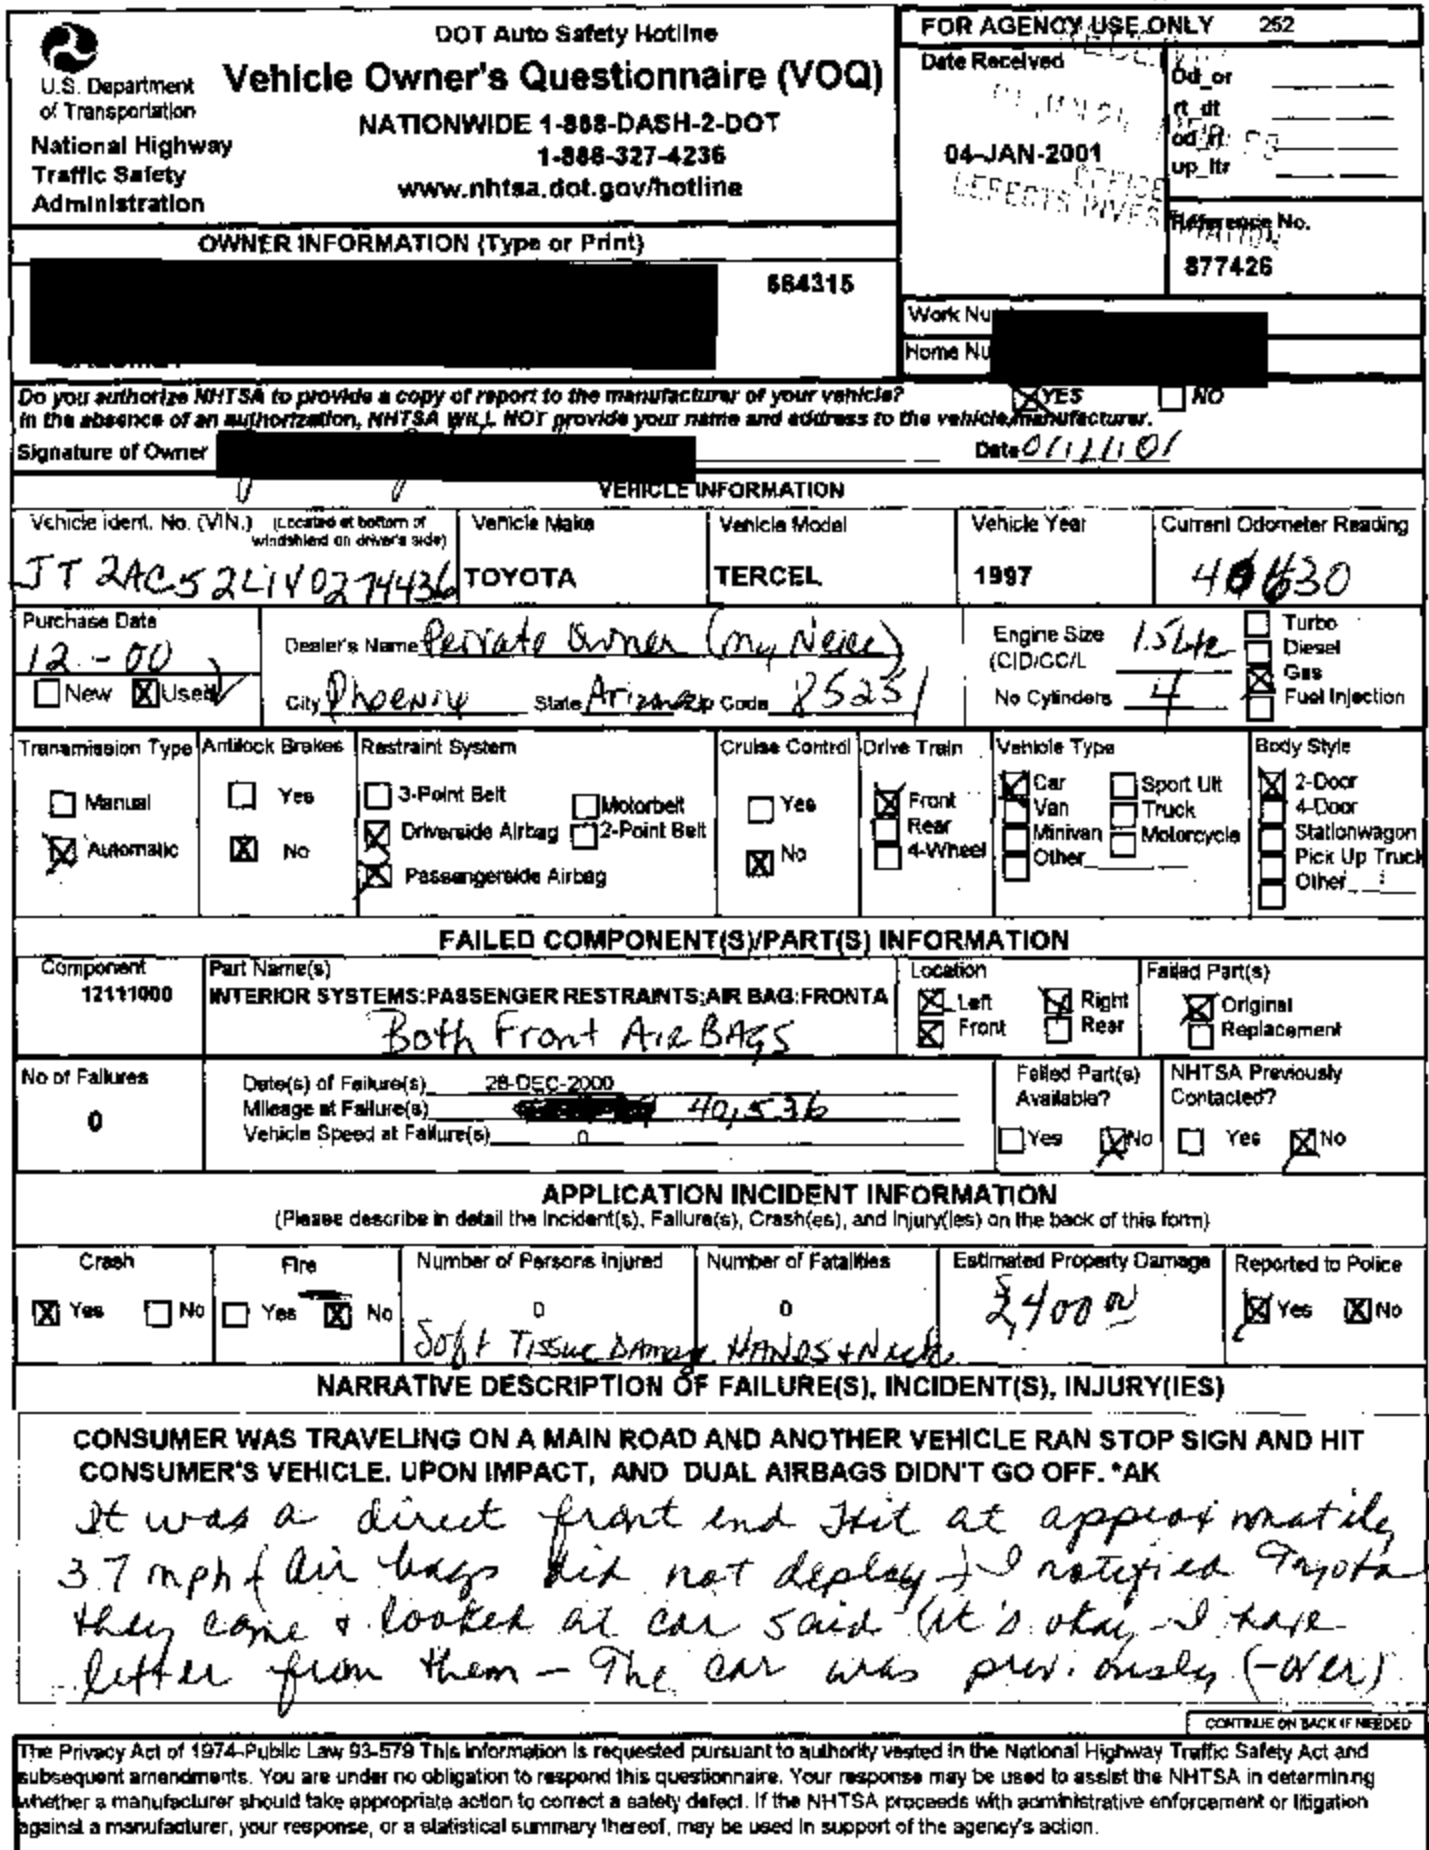 DOT Auto Safety Hotline
Vehicle Owner's Questionnaire (VOQ)
NATIONWIDE 1-888-DASH-2-DOT
1-888-327-4236
www.nhtsa.dot.gov/hotline
U.S. Department
of Transportation
National Highway
Traffic Safety
Administration
FOR AGENCY USE ONLY 252
Date Received
04-JAN-2001
Od_or
rt_dt
od_rt
up_ltr
Reference No.
877426
OWNER INFORMATION (Type or Print)
684315
Work Nu
Home Nu
Do you authorize NHTSA to provide a copy of report to the manufacturer of your vehicle? YES NO
In the absence of an authorization, NHTSA WILL NOT provide your name and address to the vehicle manufacturer.
Signature of Owner Date
VEHICLE INFORMATION
Vehicle Ident. No. (VIN.) (Located at bottom of windshield on driver's side)
Vehicle Make
TOYOTA
Vehicle Model
TERCEL
Vehicle Year
1997
Current Odometer Reading
Purchase Date
12-00
New Used
Dealer's Name Private Owner (my Neice)
City Phoenix State Arizona Zip Code 85251
Engine Size 1.5 Ltr
(CID/CC/L
No Cylinders 4
Turbo
Diesel
Gas
Fuel Injection
Transmission Type
Manual
Automatic
Antilock Brakes
Yes
No
Restraint System
3-Point Belt Motorbelt
Driverside Airbag 2-Point Belt
Passengerside Airbag
Cruise Control
Yes
No
Drive Train
Front
Rear
4-Wheel
Vehicle Type
Car Sport Ult
Van Truck
Minivan Motorcycle
Other
Body Style
2-Door
4-Door
Stationwagon
Pick Up Truck
Other
FAILED COMPONENT(S)/PART(S) INFORMATION
Component
12111000
Part Name(s)
INTERIOR SYSTEMS:PASSENGER RESTRAINTS:AIR BAG:FRONTA
Both Front AIR BAGS
Location
Left Right
Front Rear
Failed Part(s)
Original
Replacement
No of Failures
0
Date(s) of Failure(s) 28-DEC-2000
Mileage at Failure(s) 40,536
Vehicle Speed at Failure(s) 0
Failed Part(s)
Available?
Yes No
NHTSA Previously
Contacted?
Yes No
APPLICATION INCIDENT INFORMATION
(Please describe in detail the Incident(s), Failure(s), Crash(es), and Injury(ies) on the back of this form)
Crash
Yes No
Fire
Yes No
Number of Persons Injured
0
Number of Fatalities
0
Soft Tissue Damage HANDS + Neck
Estimated Property Damage
2,400 00
Reported to Police
Yes No
NARRATIVE DESCRIPTION OF FAILURE(S), INCIDENT(S), INJURY(IES)
CONSUMER WAS TRAVELING ON A MAIN ROAD AND ANOTHER VEHICLE RAN STOP SIGN AND HIT
CONSUMER'S VEHICLE. UPON IMPACT, AND DUAL AIRBAGS DIDN'T GO OFF. *AK
It was a direct front end Hit at approximately
37 mph (Air bags did not deploy) I notified Toyota
they came & looked at car said it's okay I have
letter from them - The car was previously (-over)
CONTINUE ON BACK IF NEEDED
The Privacy Act of 1974-Public Law 93-579 This information is requested pursuant to authority vested in the National Highway Traffic Safety Act and
subsequent amendments. You are under no obligation to respond this questionnaire. Your response may be used to assist the NHTSA in determining
whether a manufacturer should take appropriate action to correct a safety defect. If the NHTSA proceeds with administrative enforcement or litigation
against a manufacturer, your response, or a statistical summary thereof, may be used in support of the agency's action.